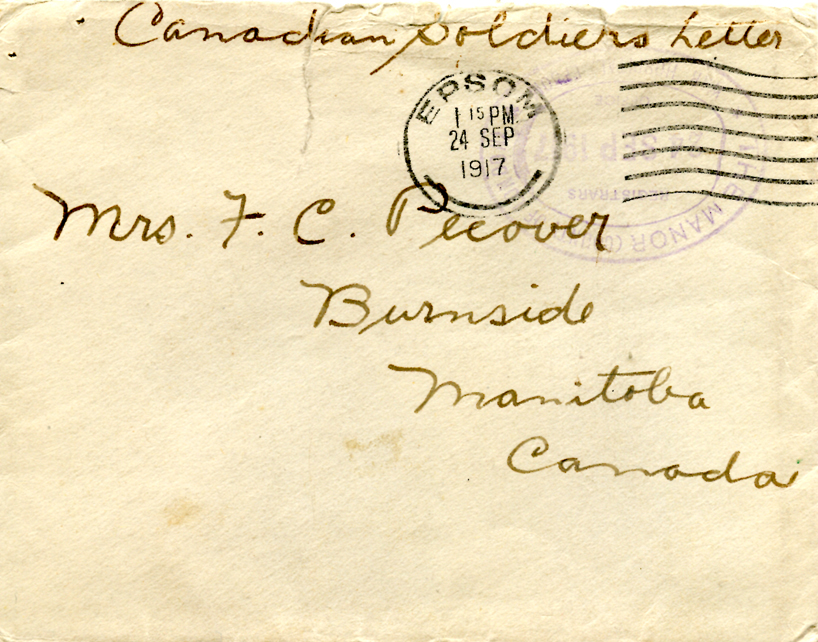 Canadian Soldiers Letter
EPSOM
1 15 PM
24 SEP
1917
REGISTRARS
MANOR (COUNTY OF
Mrs. F. C. Pecover
Burnside
Manitoba
Canada